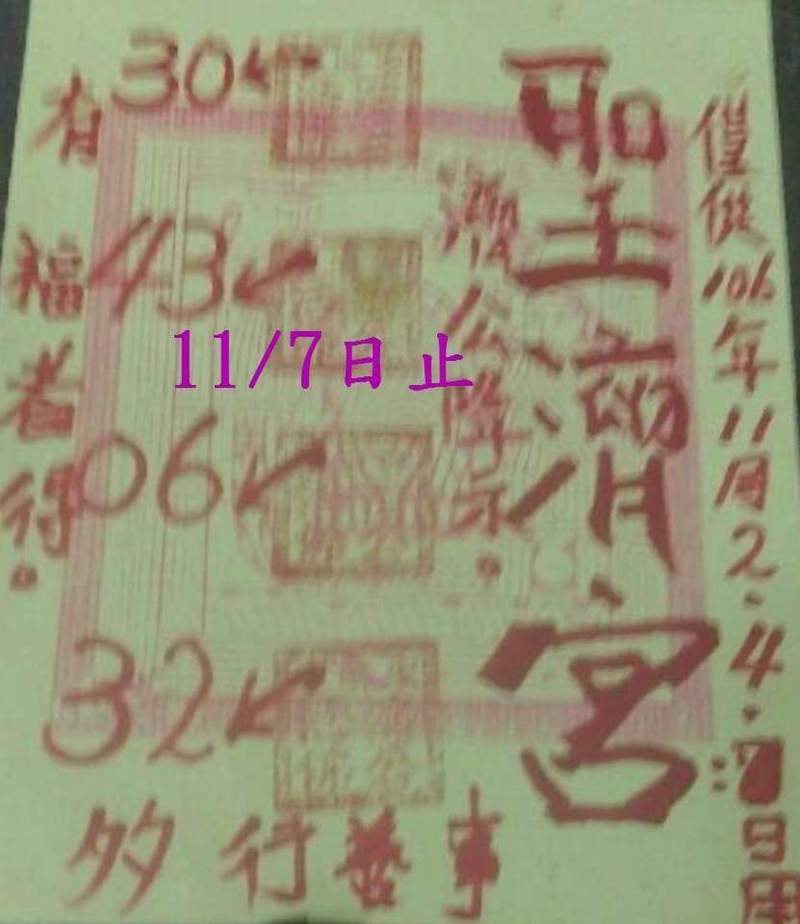 僅供106年11月2.4.7日用
聖濟宮
濟公降示.
30
43
06
32
有福者得.
多行善事
11/7日止